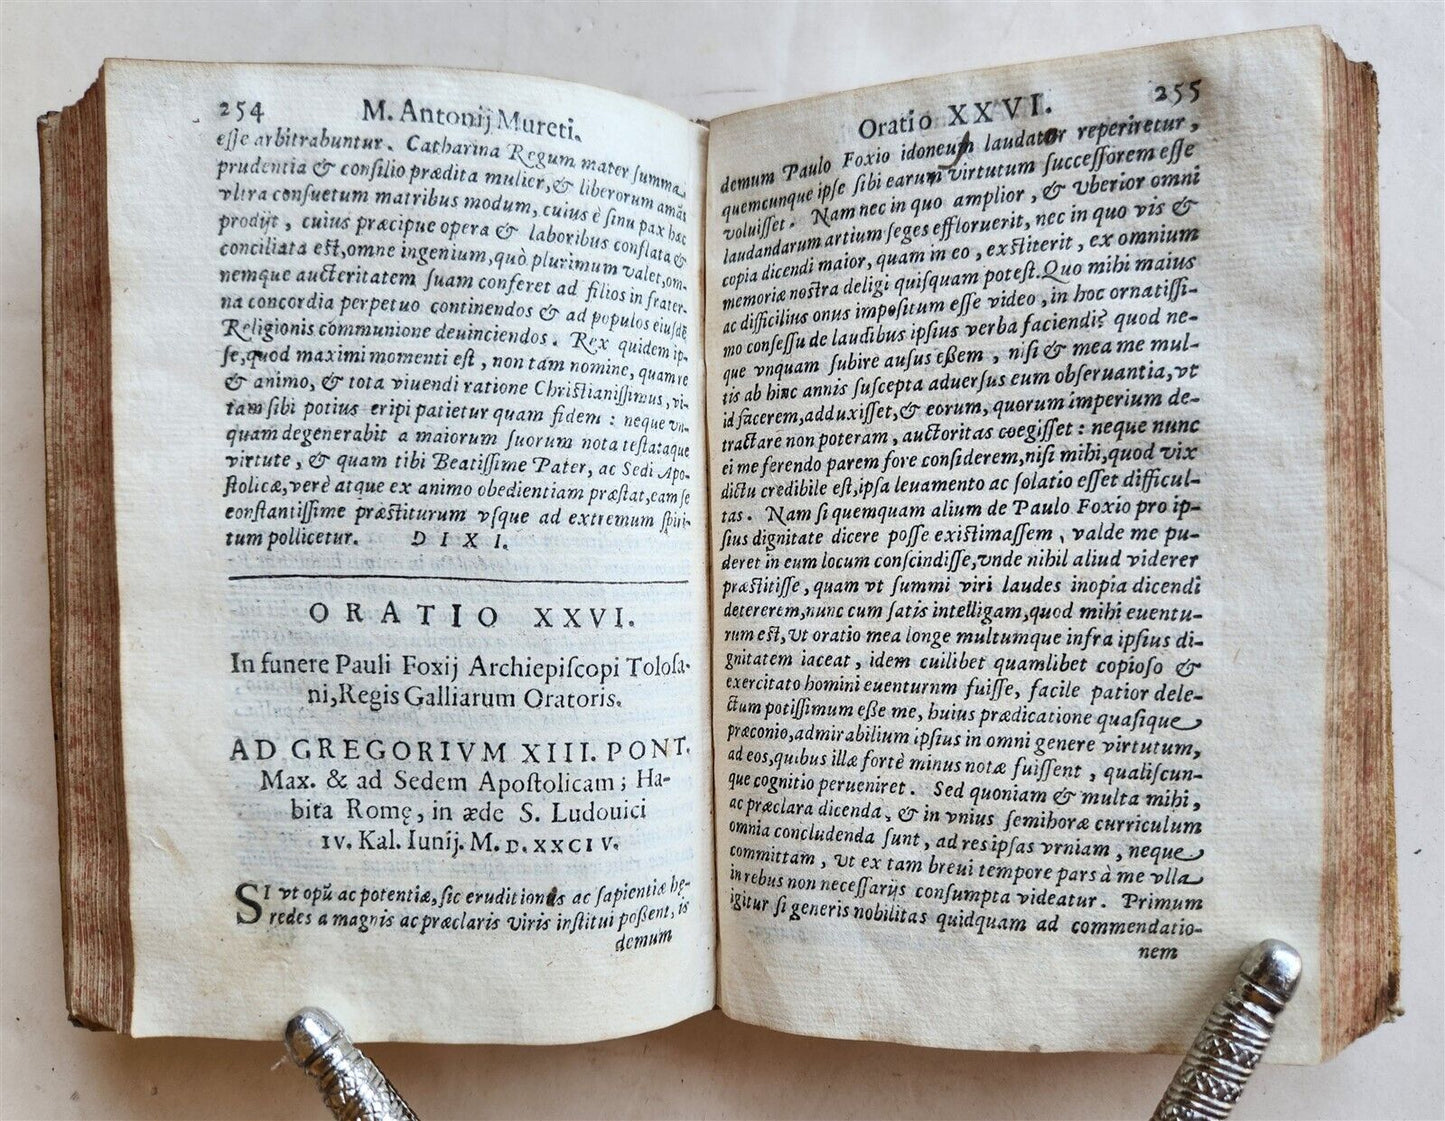 254 M. Antonij Mureti.
eſſe arbitrabuntur. Catharina Regum mater ſumma
prudentia & conſilio prædita mulier, & liberorum amãs
vltra conſuetum matribus modum, cuius è ſinu pax hæc
prodijt, cuius præcipue opera & laboribus conflata &
conciliata eſt, omne ingenium, quò plurimum valet, om-
nemque aucteritatem ſuam conferet ad filios in frater-
na concordia perpetuo continendos & ad populos eiuſdẽ
Religionis communione deuinciendos. Rex quidem ip-
ſe, quod maximi momenti eſt, non tam nomine, quam re
& animo, & tota viuendi ratione Chriſtianiſſimus, vi-
tam ſibi potius eripi patietur quam fidem: neque vn-
quam degenerabit a maiorum ſuorum nota teſtataque
virtute, & quam tibi Beatiſſime Pater, ac Sedi Apo-
ſtolicæ, verè atque ex animo obedientiam præſtat, eam ſe
conſtantiſſime præſtiturum vſque ad extremum ſpiri-
tum pollicetur. DIXI.
ORATIO XXVI.
In funere Pauli Foxij Archiepiſcopi Toloſa-
ni, Regis Galliarum Oratoris.
AD GREGORIVM XIII. PONT.
Max. & ad Sedem Apoſtolicam; Ha-
bita Romę, in æde S. Ludouici
IV. Kal. Iunij. M.D.XXCIV.
SI vt opũ ac potentiæ, ſic eruditionis ac ſapientiæ hę-
redes a magnis ac præclaris viris inſtitui poßent, is
demum
Oratio XXVI. 255
demum Paulo Foxio idoneum laudator reperiretur,
quemcunque ipſe ſibi earum virtutum ſucceſſorem eſſe
voluiſſet. Nam nec in quo amplior, & vberior omni
laudandarum artium ſeges effloruerit, nec in quo vis &
copia dicendi maior, quam in eo, exſtiterit, ex omnium
memoriæ noſtra deligi quiſquam poteſt. Quo mihi maius
ac difficilius onus impoſitum eſſe video, in hoc ornatiſſi-
mo conſeſſu de laudibus ipſius verba faciendi? quod ne-
que vnquam ſubire auſus eßem, niſi & mea me mul-
tis ab hinc annis ſuſcepta aduerſus eum obſeruantia, vt
id facerem, adduxiſſet, & eorum, quorum imperium de-
tractare non poteram, auctoritas coegiſſet: neque nunc
ei me ferendo parem fore conſiderem, niſi mihi, quod vix
dictu credibile eſt, ipſa leuamento ac ſolatio eſſet difficul-
tas. Nam ſi quemquam alium de Paulo Foxio pro ip-
ſius dignitate dicere poſſe exiſtimaſſem, valde me pu-
deret in eum locum conſcindiſſe, vnde nihil aliud viderer
præſtitiſſe, quam vt ſummi viri laudes inopia dicendi
detererem, nunc cum ſatis intelligam, quod mihi euentu-
rum eſt, vt oratio mea longe multumque infra ipſius di-
gnitatem iaceat, idem cuilibet quamlibet copioſo &
exercitato homini euenturnm fuiſſe, facile patior dele-
ctum potiſſimum eße me, huius prædicatione quaſique
præconio, admirabilium ipſius in omni genere virtutum,
ad eos, quibus illæ fortè minus notæ fuiſſent, qualiſcun-
que cognitio perueniret. Sed quoniam & multa mihi,
ac præclara dicenda, & in vnius ſemihoræ curriculum
omnia concludenda ſunt, ad res ipſas vrniam, neque
committam, vt ex tam breui tempore pars à me vlla
in rebus non neceſſarijs conſumpta videatur. Primum
igitur ſi generis nobilitas quidquam ad commendatio-
nem